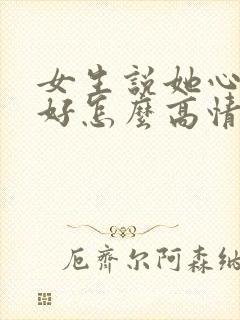 女生說她心
好怎麼高情
厄齊尔阿森纳